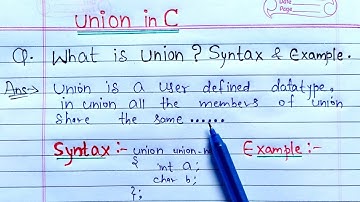 Date
Page
Union in C
Q. What is Union? Syntax & Example.
Ans:- Union is a user defined datatype.
in union all the members of union
share the same ......
Syntax:- union union-n Example:-
{
int a;
char b;
};